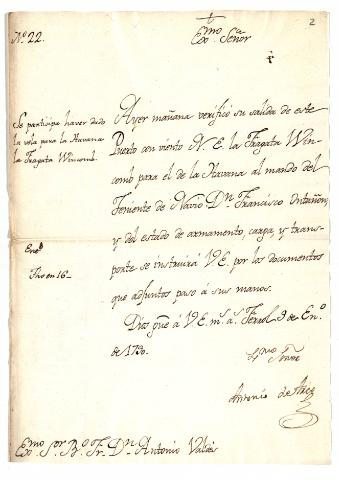 2
Nº 22.
Exmo Señor
Se participa haver dado
la vela para la Havana
la Fragata Wincomb.
Ayer mañana verificó su salida de este
Puerto con viento N.E. la Fragata Win-
comb para el de la Havana al mando del
Teniente de Navio Dn. Francisco
y del estado de armamento, carga, y trans-
porte se instruirá V.E. por los documentos
que adjuntos paso á sus manos.
Eneº
en 16
Dios gue á V.E. ms. as. Ferrol 9 de Enº.
de 1790.
Exmo Señor
Antonio de Arce
Exmo Sor. Bº. Fr. Dn. Antonio Valdés